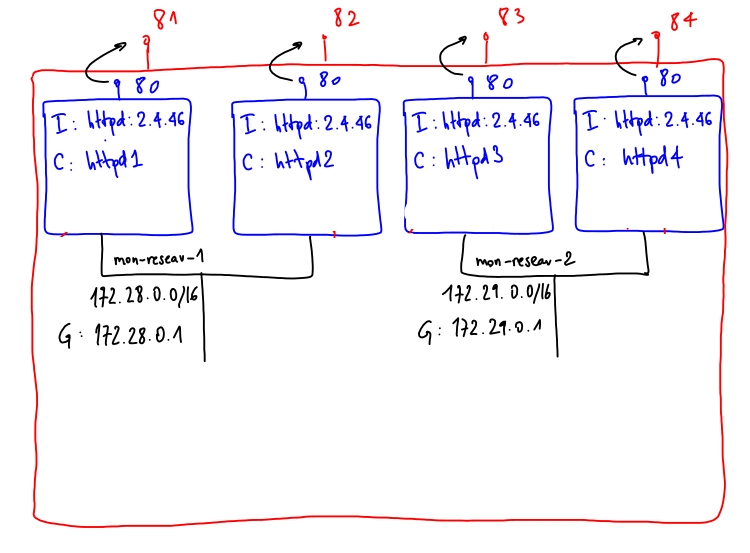 81
82
83
84
80
80
80
80
I: httpd:2.4.46
C: httpd1
I: httpd:2.4.46
C: httpd2
I: httpd:2.4.46
C: httpd3
I: httpd:2.4.46
C: httpd4
mon-reseau-1
172.28.0.0/16
G: 172.28.0.1
mon-reseau-2
172.29.0.0/16
G: 172.29.0.1